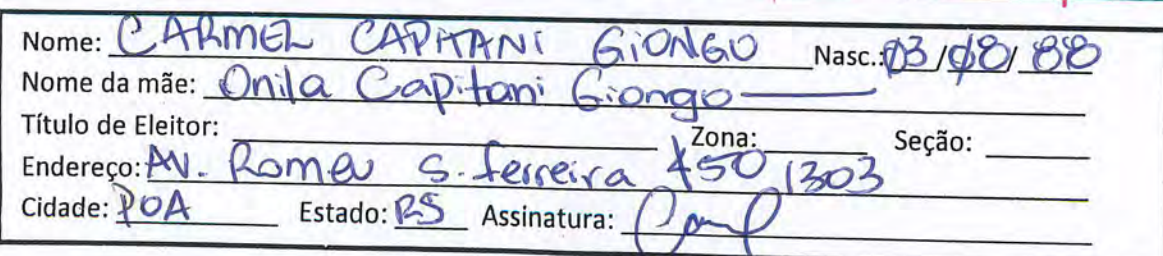 Nome: CARMEL CAPITANI GIONGO Nasc.: 03/08/88
Nome da mãe: Onila Capitani Giongo
Título de Eleitor: Zona: Seção:
Endereço: AV. Romeu S. ferreira 450 1303
Cidade: POA Estado: RS Assinatura: